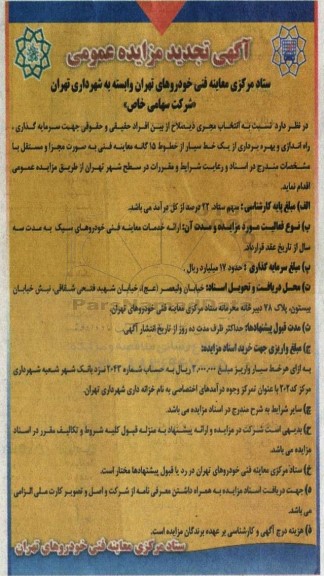 آگهی تجدید مزایده عمومی
ستاد مرکزی معاینه فنی خودروهای تهران وابسته به شهرداری تهران
«شرکت سهامی خاص»
در نظر دارد نسبت به انتخاب مجری ذیصلاح از بین افراد حقیقی و حقوقی جهت سرمایه گذاری ،
راه اندازی و بهره برداری از یک خط سیار از خطوط ۱۵ گانه معاینه فنی به صورت مجزا و مستقل با
مشخصات مندرج در اسناد و رعایت شرایط و مقررات در سطح شهر تهران از طریق مزایده عمومی
اقدام نماید.
الف) مبلغ پایه کارشناسی : سهم ستاد، ۲۳ درصد از کل درآمد می باشد.
ب) نوع فعالیت مورد مزایده و مدت آن: ارائه خدمات معاینه فنی خودروهای سبک به مدت سه
سال از تاریخ عقد قرارداد.
پ) مبلغ سرمایه گذاری : حدود ۱۷ میلیارد ریال .
ت) محل دریافت و تحویل اسناد: خیابان ولیعصر (عج)، خیابان شهید فتحی شقاقی، نبش خیابان
بیستون، پلاک ۲۸ دبیرخانه محرمانه ستاد مرکزی معاینه فنی خودروهای تهران.
ث) مدت قبول پیشنهادها: حداکثر ظرف مدت ده روز از تاریخ انتشار آگهی.
ج) مبلغ واریزی جهت خرید اسناد مزایده:
به ازای هر خط سیار واریز مبلغ ۲،۰۰۰،۰۰۰ ریال به حساب شماره ۲۰۴۳ نزد بانک شهر شعبه شهرداری
مرکز کد ۲۰۲ با عنوان تمرکز وجوه درآمدهای اختصاصی به نام خزانه داری شهرداری تهران.
چ) سایر شرایط به شرح مندرج در اسناد مزایده می باشد.
ح) بدیهی است شرکت در مزایده و ارائه پیشنهاد به منزله قبول کلیه شروط و تکالیف مقرر در اسناد
مزایده می باشد.
خ) ستاد مرکزی معاینه فنی خودروهای تهران در رد یا قبول پیشنهادها مختار است.
د) جهت دریافت اسناد مزایده به همراه داشتن معرفی نامه از شرکت و اصل و تصویر کارت ملی الزامی
می باشد.
ذ) هزینه درج آگهی و کارشناسی بر عهده برندگان مزایده است.
ستاد مرکزی معاینه فنی خودروهای تهران